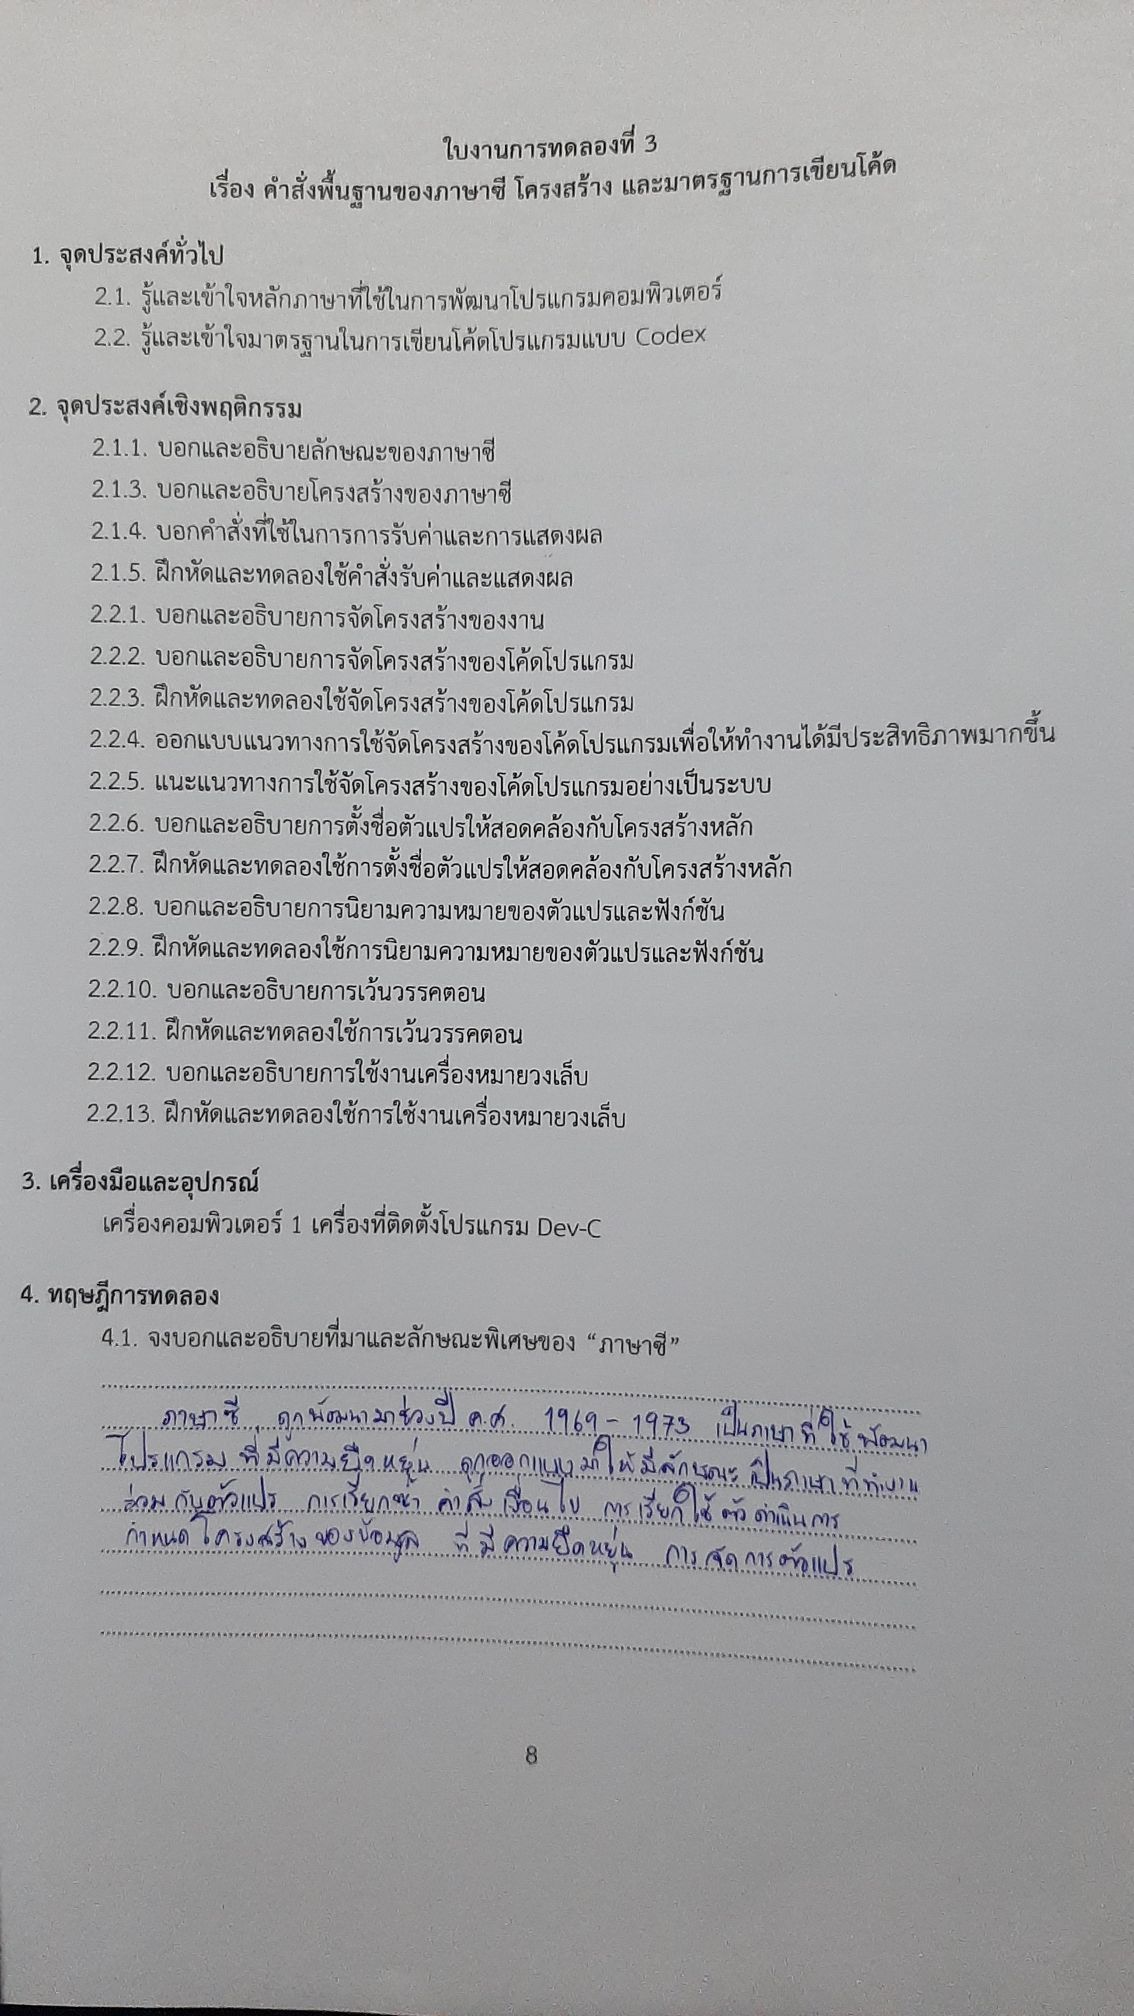 ใบงานการทดลองที่ 3
เรื่อง คำสั่งพื้นฐานของภาษาซี โครงสร้าง และมาตรฐานการเขียนโค้ด
1. จุดประสงค์ทั่วไป
2.1. รู้และเข้าใจหลักภาษาที่ใช้ในการพัฒนาโปรแกรมคอมพิวเตอร์
2.2. รู้และเข้าใจมาตรฐานในการเขียนโค้ดโปรแกรมแบบ Codex
2. จุดประสงค์เชิงพฤติกรรม
2.1.1. บอกและอธิบายลักษณะของภาษาซี
2.1.3. บอกและอธิบายโครงสร้างของภาษาซี
2.1.4. บอกคำสั่งที่ใช้ในการการรับค่าและการแสดงผล
2.1.5. ฝึกหัดและทดลองใช้คำสั่งรับค่าและแสดงผล
2.2.1. บอกและอธิบายการจัดโครงสร้างของงาน
2.2.2. บอกและอธิบายการจัดโครงสร้างของโค้ดโปรแกรม
2.2.3. ฝึกหัดและทดลองใช้จัดโครงสร้างของโค้ดโปรแกรม
2.2.4. ออกแบบแนวทางการใช้จัดโครงสร้างของโค้ดโปรแกรมเพื่อให้ทำงานได้มีประสิทธิภาพมากขึ้น
2.2.5. แนะแนวทางการใช้จัดโครงสร้างของโค้ดโปรแกรมอย่างเป็นระบบ
2.2.6. บอกและอธิบายการตั้งชื่อตัวแปรให้สอดคล้องกับโครงสร้างหลัก
2.2.7. ฝึกหัดและทดลองใช้การตั้งชื่อตัวแปรให้สอดคล้องกับโครงสร้างหลัก
2.2.8. บอกและอธิบายการนิยามความหมายของตัวแปรและฟังก์ชัน
2.2.9. ฝึกหัดและทดลองใช้การนิยามความหมายของตัวแปรและฟังก์ชัน
2.2.10. บอกและอธิบายการเว้นวรรคตอน
2.2.11. ฝึกหัดและทดลองใช้การเว้นวรรคตอน
2.2.12. บอกและอธิบายการใช้งานเครื่องหมายวงเล็บ
2.2.13. ฝึกหัดและทดลองใช้การใช้งานเครื่องหมายวงเล็บ
3. เครื่องมือและอุปกรณ์
เครื่องคอมพิวเตอร์ 1 เครื่องที่ติดตั้งโปรแกรม Dev-C
4. ทฤษฎีการทดลอง
4.1. จงบอกและอธิบายที่มาและลักษณะพิเศษของ “ภาษาซี”
ภาษาซี ถูกพัฒนามาช่วงปี ค.ศ. 1969 - 1973 เป็นภาษาที่ใช้พัฒนา
โปรแกรมที่มีความยืดหยุ่น ถูกออกแบบมาให้มีลักษณะเป็นภาษาที่ทำงาน
ร่วมกับตัวแปร การเรียกซ้ำ คำสั่งเงื่อนไข การเรียกใช้ตัวดำเนินการ
กำหนดโครงสร้างของข้อมูล ที่มีความยืดหยุ่น การจัดการตัวแปร
8